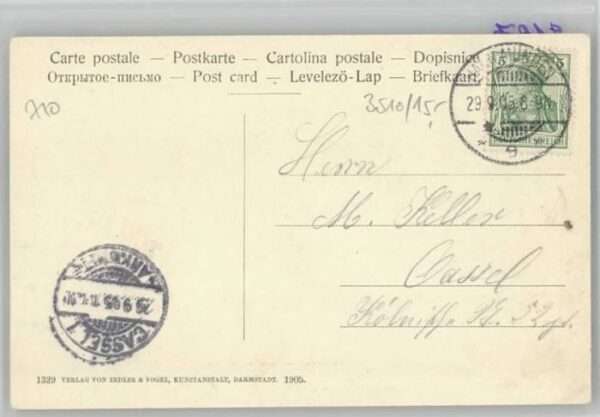 Carte postale — Postkarte — Cartolina postale — Dopisnice
Открытое-письмо — Post card — Levelező-Lap — Briefkaart
710
3510/15,-
29.9.05.
DEUTSCHES REICH
Herrn
M. Keller
Cassel
Kölnische
CASSEL 1
29.9.05.
1329 VERLAG VON ZEDLER & VOGEL, KUNSTANSTALT, DARMSTADT. 1905.